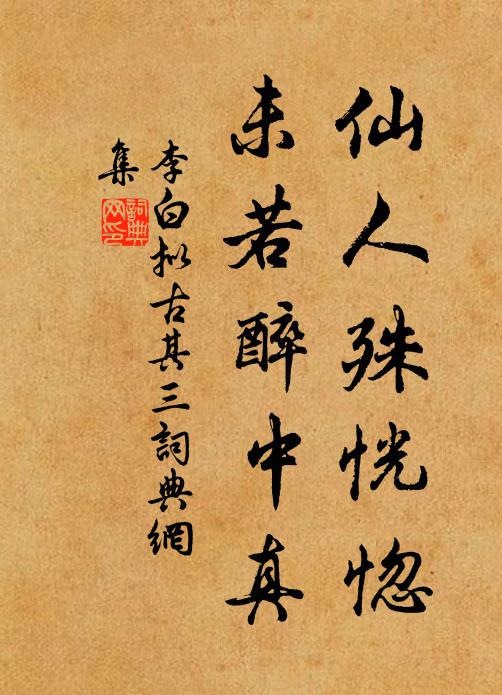 仙人殊恍惚
未若醉中真
李白拟古其三詞典網
集
詞典
网印